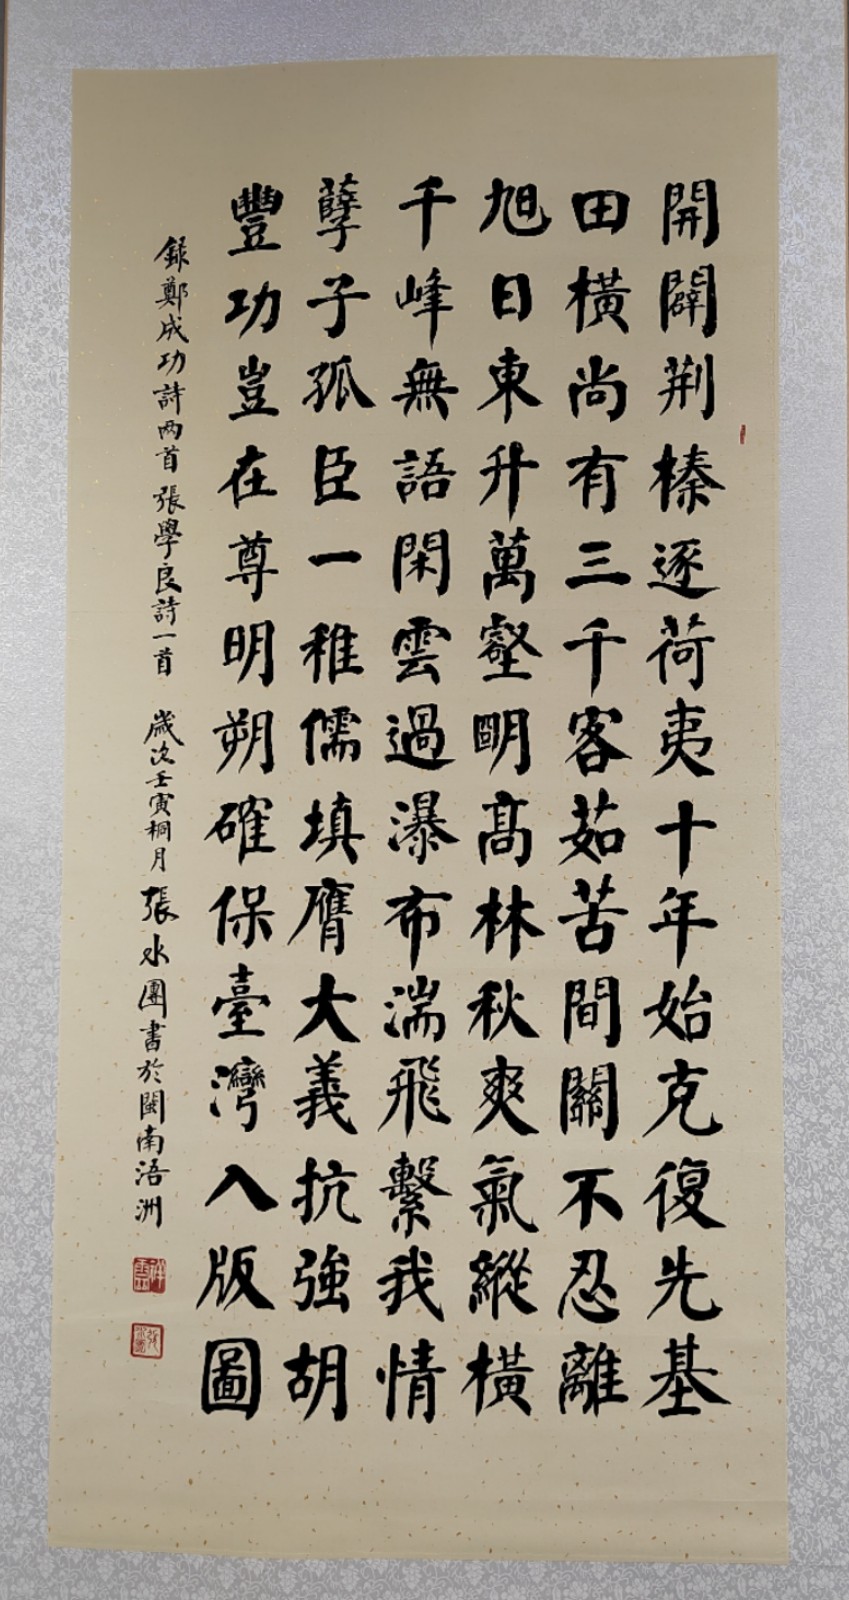 開闢荆榛逐荷夷十年始克復先基
田橫尚有三千客茹苦間關不忍離
旭日東升萬壑明高林秋爽氣縱橫
千峰無語閑雲過瀑布湍飛繫我情
孽子孤臣一稚儒填膺大義抗強胡
豐功豈在尊明朔確保臺灣入版圖
録鄭成功詩两首 張學良詩一首 歲次壬寅桐月 張水團書於閩南浯洲